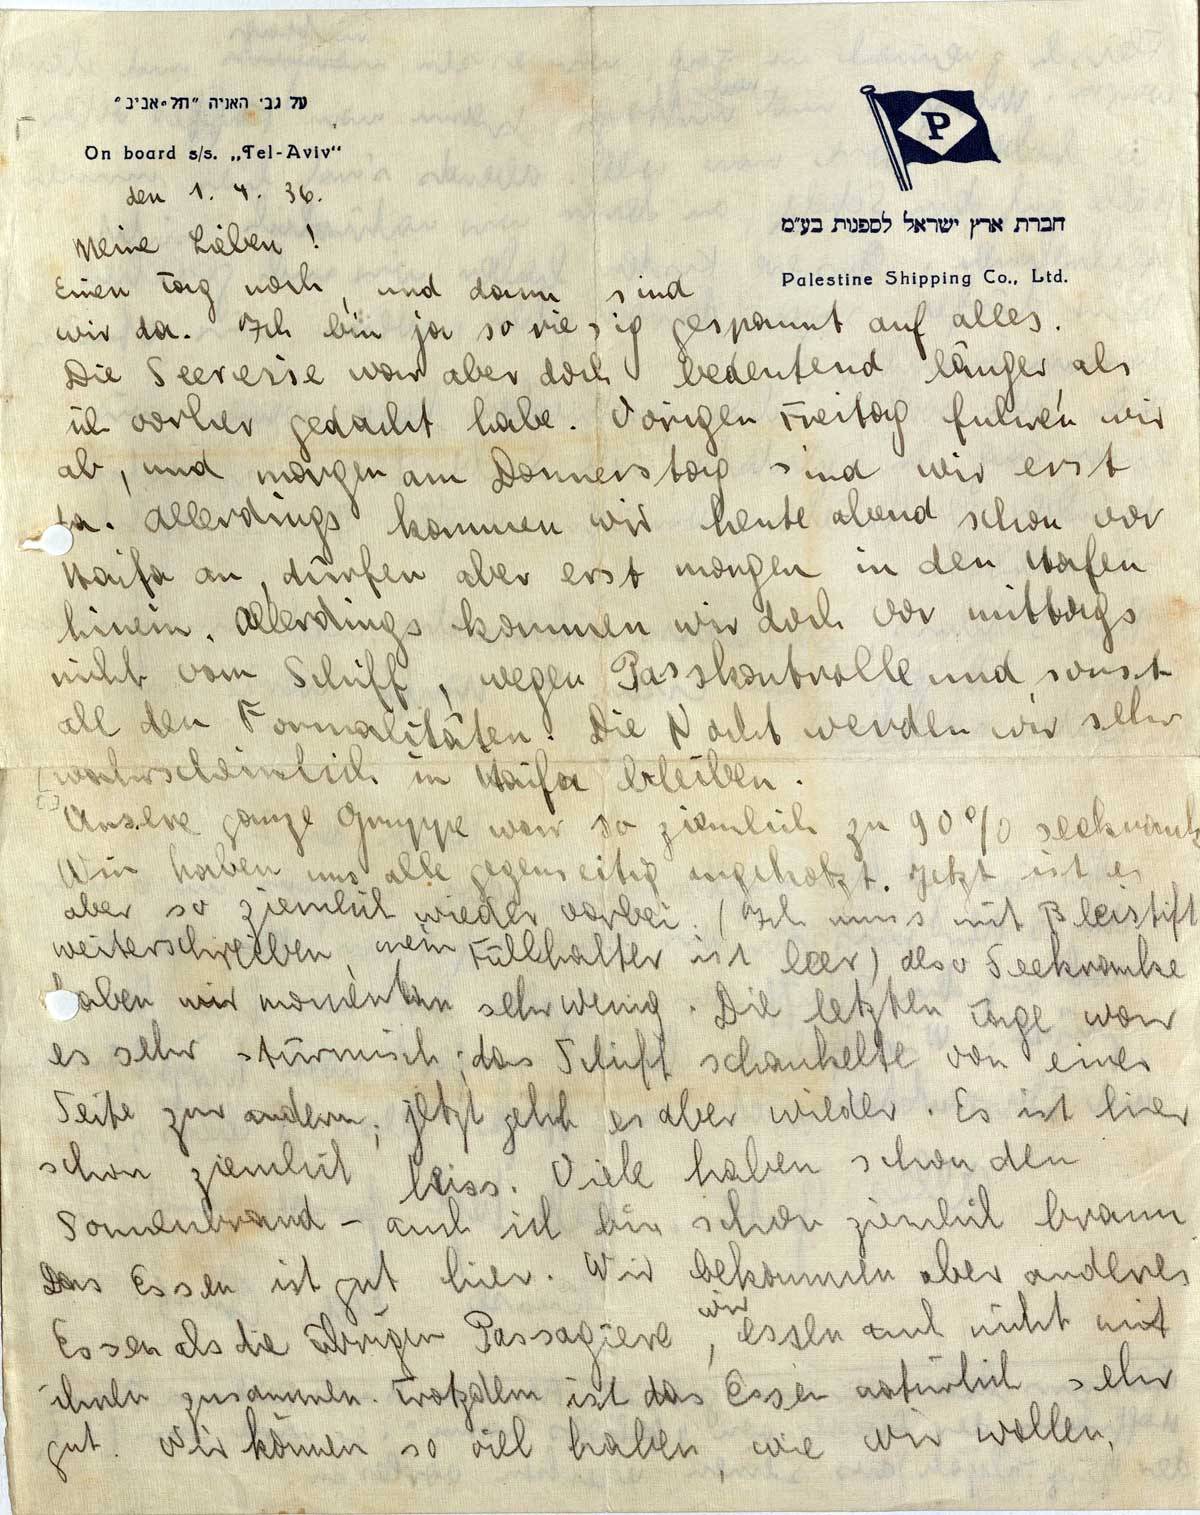 על גבי האניה "תל-אביב"
On board s/s. „Tel-Aviv"
den 1. 4. 36.
P
חברת ארץ ישראל לספנות בע"מ
Palestine Shipping Co., Ltd.
Meine Lieben!
Einen Tag noch, und dann sind
wir da. Ich bin ja so riesig gespannt auf alles.
Die Seereise war aber doch bedeutend länger als
ich vorher gedacht habe. Vorigen Freitag fuhren wir
ab, und morgen am Donnerstag sind wir erst
da. Allerdings kommen wir heute abend schon vor
Haifa an, dürfen aber erst morgen in den Hafen
hinein. Allerdings kommen wir doch vor mittags
nicht vom Schiff, wegen Passkontrolle und sonst
all den Formalitäten. Die Nacht werden wir sehr
wahrscheinlich in Haifa bleiben.
Unsere ganze Gruppe war so ziemlich zu 90% seekrank
Wir haben uns alle gegenseitig angekotzt. Jetzt ist es
aber so ziemlich wieder vorbei. (Ich muss mit Bleistift
weiterschreiben, mein Füllhalter ist leer) also Seekranke
haben wir momentan sehr wenig. Die letzten Tage war
es sehr stürmisch; das Schiff schaukelte von einer
Seite zur andern; jetzt geht es aber wieder. Es ist hier
schon ziemlich heiss. Viele haben schon den
Sonnenbrand – auch ich bin schon ziemlich braun
Das Essen ist gut hier. Wir bekommen aber anderes
Essen als die übrigen Passagiere, wir essen auch nicht mit
ihnen zusammen. Trotzdem ist das Essen natürlich sehr
gut. Wir können so viel haben, wie wir wollen.